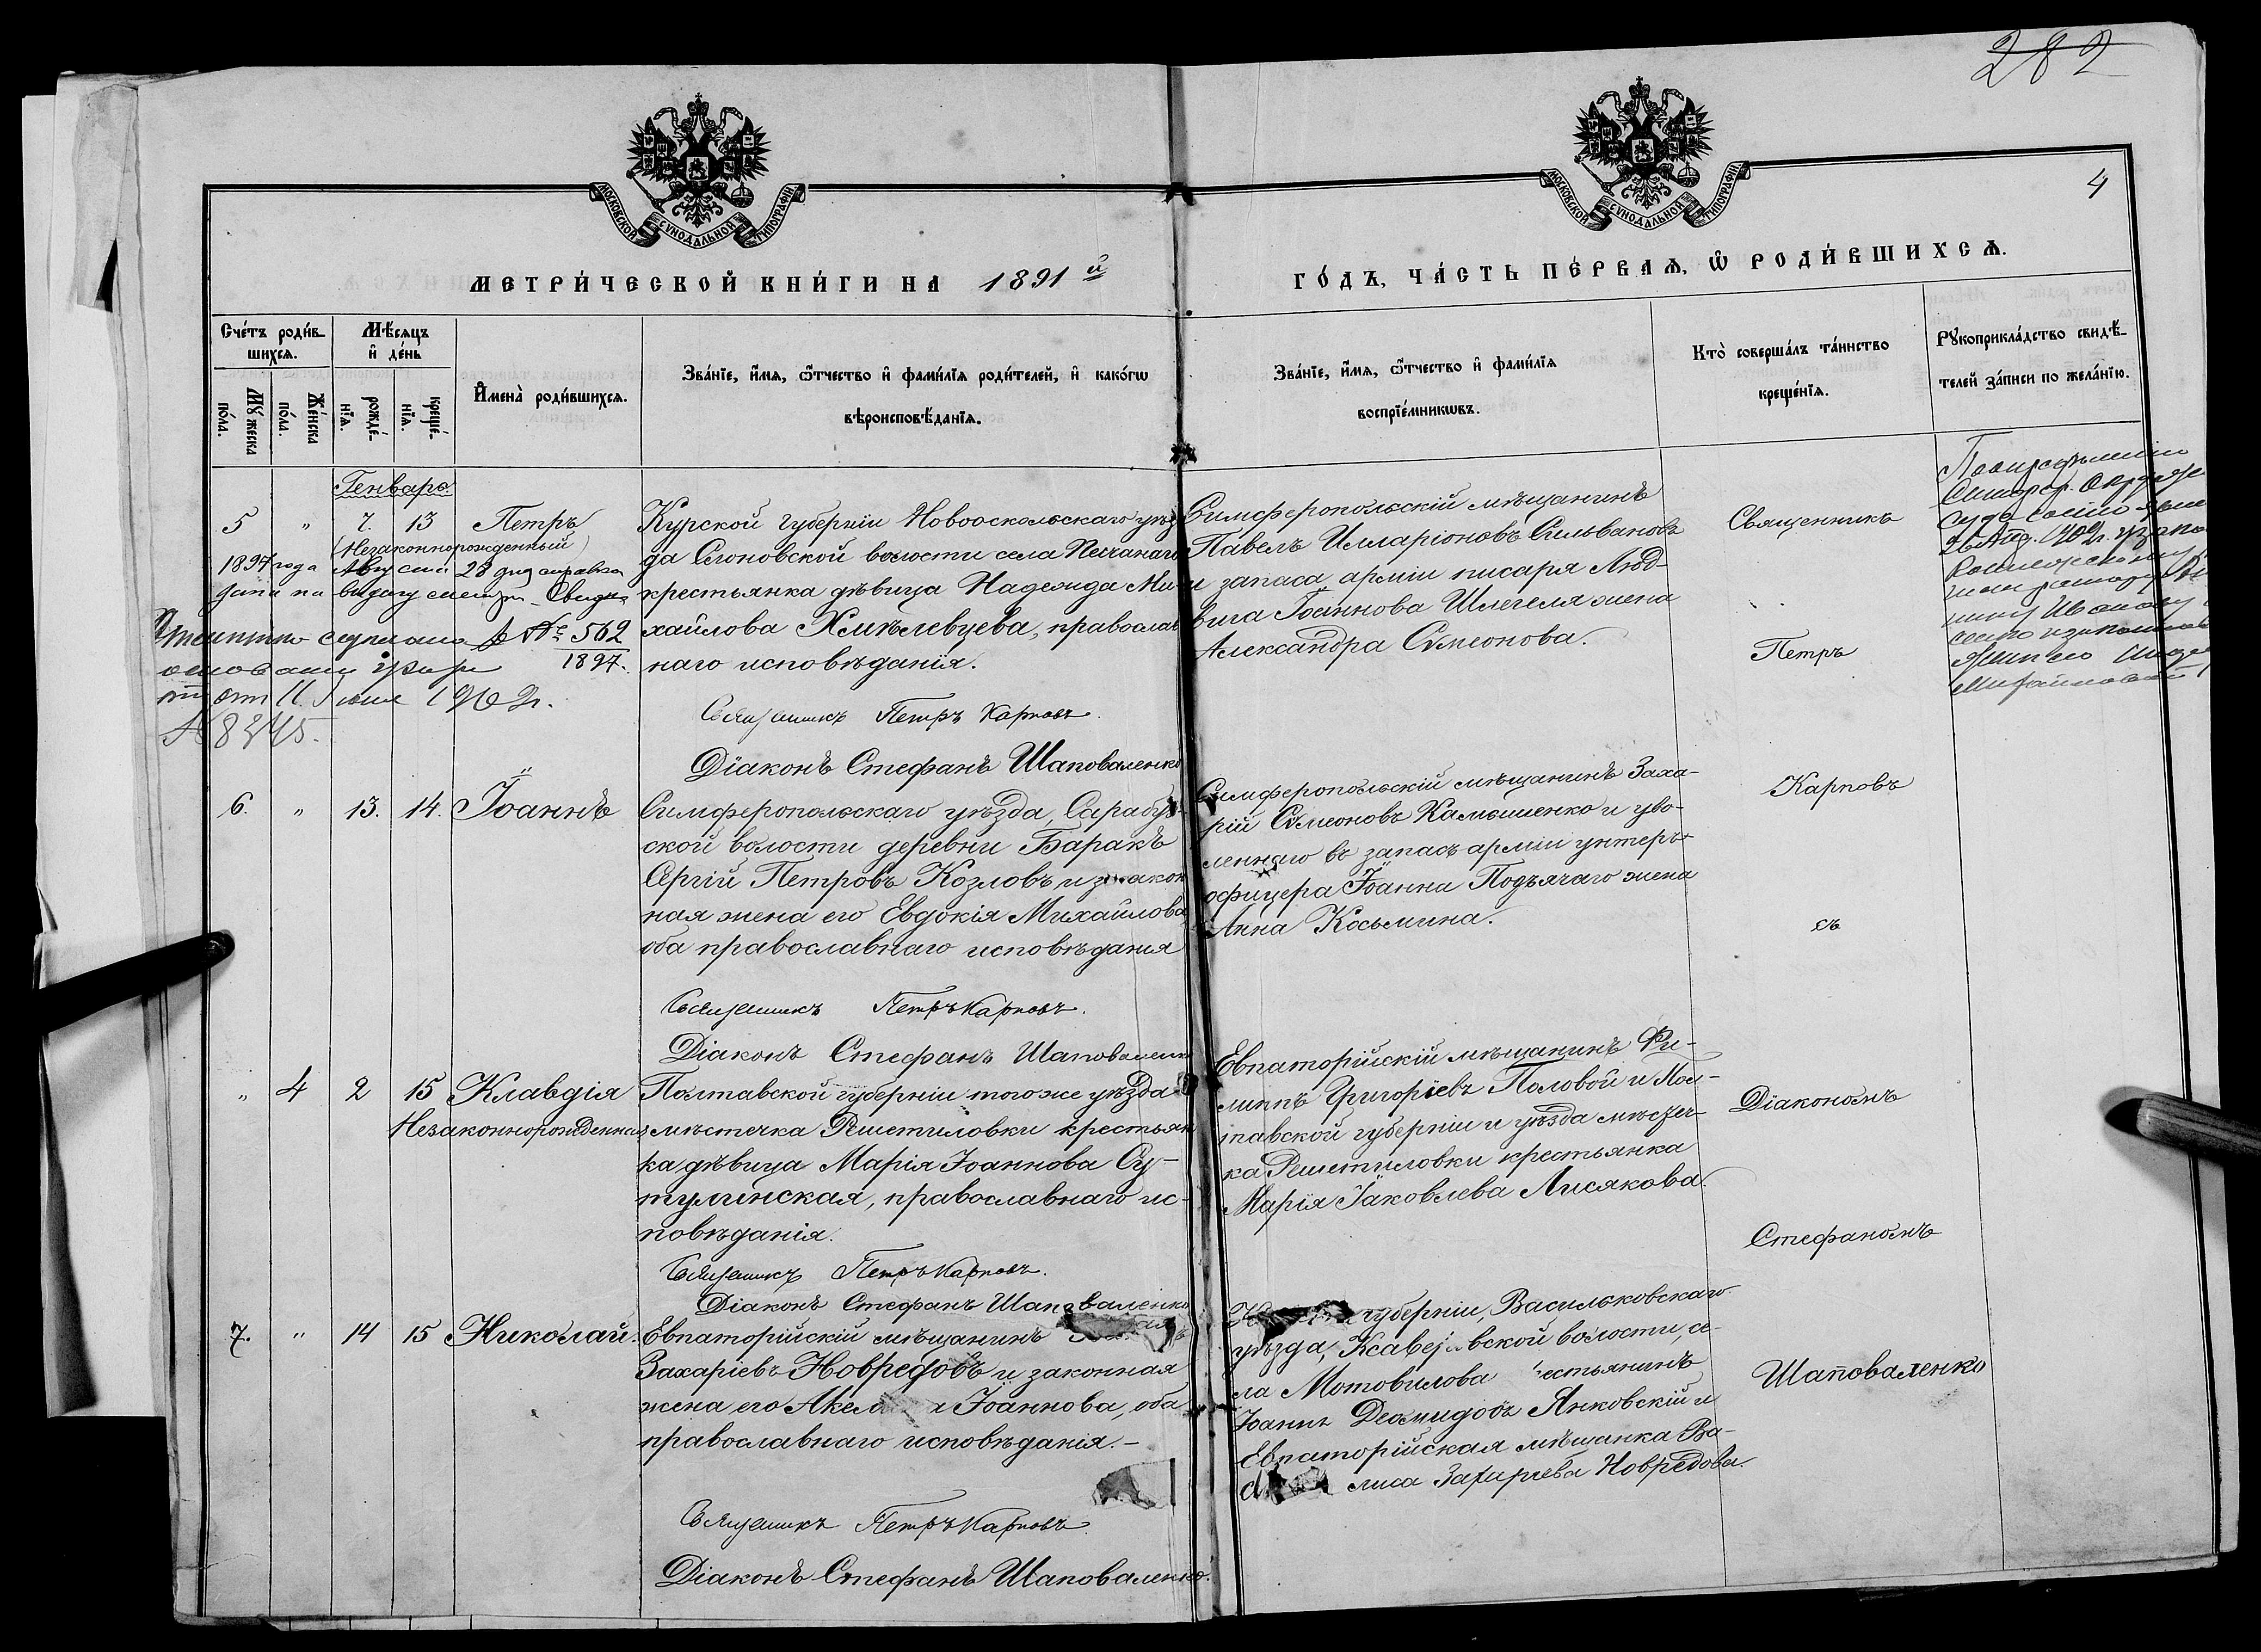 282
4
МОСКОВСКОЙ СѴНОДАЛЬНОЙ ТИПОГРАФІИ
МОСКОВСКОЙ СѴНОДАЛЬНОЙ ТИПОГРАФІИ
МЕТРИ́ЧЕСКОЙ КНИ́ГИ НА 1891й
ГО́ДЪ, ЧА́СТЬ ПЕ́РВАѦ, Ѡ҆ РОДИ́ВШИХСѦ.
Сче́тъ роди́в-
шихсѧ.
Мꙋ́жеска
по́ла.
Же́нска
по́ла.
Мѣ́сѧцъ
и҆ де́нь
рожде́-
нїѧ.
креще́-
нїѧ.
И҆мена̀ роди́вшихсѧ.
Зва́нїе, и҆́мѧ, ѻ҆́тчество и҆ фами́лїѧ роди́телей, и҆ како́гѡ
вѣроисповѣ́данїѧ.
Зва́нїе, и҆́мѧ, ѻ҆́тчество и҆ фами́лїѧ
воспрїе́мникѡвъ.
Кто̀ соверша́лъ та́инство
креще́нїѧ.
Рꙋкоприкла́дство свидѣ́-
телей за́писи по жела́нїю.
Генварь
5 " 7. 13 Петръ
(Незаконнорожденный)
1897 года Августа 28 дня справка
№ 562
1897.
1902 г.
№ 8345.
Курской губерніи Новооскольскаго уѣз-
да Слоновской волости села Песчанаго
крестьянка дѣвица Надежда Ми-
хайлова Хмѣлевцева, православ
наго исповѣданія.
Священникъ Петръ Карповъ.
Діаконъ Стефанъ Шаповаленко
Симферопольскій мѣщанинъ
Павелъ Илларіоновъ Сильвановъ
и запаса арміи писаря Люд-
вига Іоаннова Шлегеля жена
Александра Сѵмеонова.
Священникъ
Петръ
Карповъ
съ
Діакономъ
Стефаномъ
Шаповаленко
6. " 13. 14. Іоаннъ
Симферопольскаго уѣзда, Сарабуз-
ской волости деревни Баракъ
Сергій Петровъ Козловъ и закон
ная жена его Евдокія Михайлова,
оба православнаго исповѣданія
Священникъ Петръ Карповъ.
Діаконъ Стефанъ Шаповаленко
Симферопольскій мѣщанинъ Заха-
рій Сѵмеоновъ Камышенко и уво-
леннаго въ запасъ арміи унтеръ-
офицера Іоанна Подъячаго жена
Анна Косьмина.
" 4 2 15 Клавдія
Незаконнорожденная
Полтавской губерніи того же уѣзда
мѣстечка Решетиловки крестьян
ка дѣвица Марія Іоаннова Су-
тулинская, православнаго ис-
повѣданія.
Священникъ Петръ Карповъ.
Діаконъ Стефанъ Шаповаленко
Евпаторійскій мѣщанинъ Фи-
липпъ Григоріевъ Половой и Пол-
тавской губерніи и уѣзда мѣстеч-
ка Решетиловки крестьянка
Марія Іаковлева Лисякова.
7. " 14 15 Николай.
Евпаторійскій мѣщанинъ
Захаріевъ Новредовъ и законная
жена его Іоаннова, оба
православнаго исповѣданія.-
Священникъ Петръ Карповъ
Діаконъ Стефанъ Шаповаленко.
губерніи, Васильковскаго
уѣзда, вской волости, се-
ла Мотовилова естьянинъ
Іоаннъ Деомидовъ Янковскій и
Евпаторійская мѣщанка Ва-
лиса Захаріева Новредова